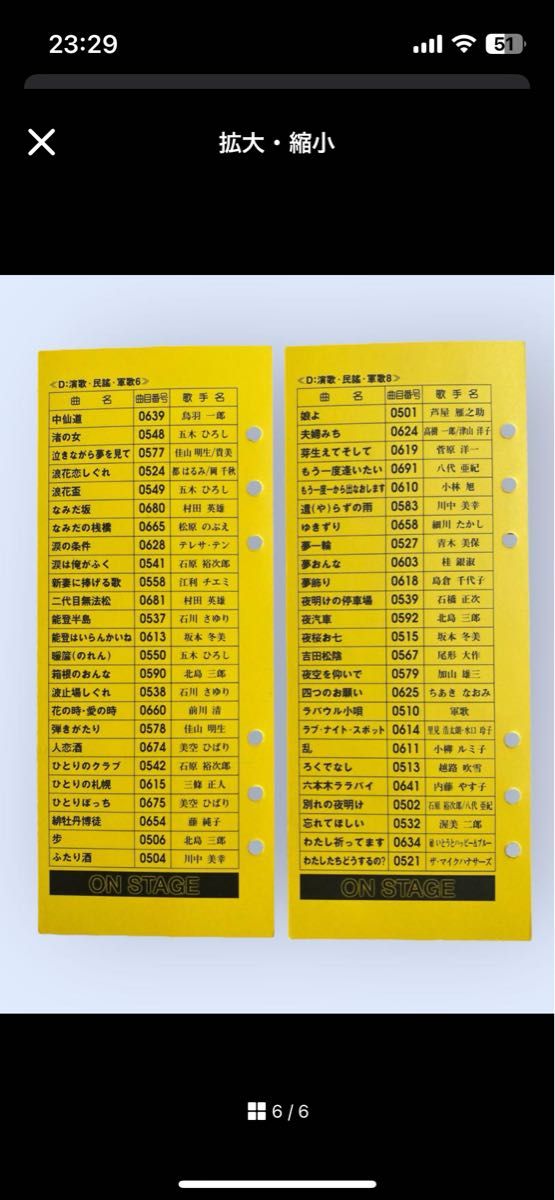 23:29
51
拡大・縮小
≪D:演歌・民謡・軍歌6≫
曲 名 曲目番号 歌 手 名
中仙道 0639 鳥羽 一郎
渚の女 0548 五木 ひろし
泣きながら夢を見て 0577 佳山 明生/貴美
浪花恋しぐれ 0524 都 はるみ/岡 千秋
浪花盃 0549 五木 ひろし
なみだ坂 0680 村田 英雄
なみだの桟橋 0665 松原 のぶえ
涙の条件 0628 テレサ・テン
涙は俺がふく 0541 石原 裕次郎
新妻に捧げる歌 0558 江利 チエミ
二代目無法松 0681 村田 英雄
能登半島 0537 石川 さゆり
能登はいらんかいね 0613 坂本 冬美
暖簾(のれん) 0550 五木 ひろし
箱根のおんな 0590 北島 三郎
波止場しぐれ 0538 石川 さゆり
花の時・愛の時 0660 前川 清
弾きがたり 0578 佳山 明生
人恋酒 0674 美空 ひばり
ひとりのクラブ 0542 石原 裕次郎
ひとりの札幌 0615 三條 正人
ひとりぼっち 0675 美空 ひばり
緋牡丹博徒 0654 藤 純子
歩 0506 北島 三郎
ふたり酒 0504 川中 美幸
ON STAGE
≪D:演歌・民謡・軍歌8≫
曲 名 曲目番号 歌 手 名
娘よ 0501 芦屋 雁之助
夫婦みち 0624 高樹 一郎/津山 洋子
芽生えてそして 0619 菅原 洋一
もう一度逢いたい 0691 八代 亜紀
もう一度一から出なおします 0610 小林 旭
遣(や)らずの雨 0583 川中 美幸
ゆきずり 0658 細川 たかし
夢一輪 0527 青木 美保
夢おんな 0603 桂 銀淑
夢飾り 0618 島倉 千代子
夜明けの停車場 0539 石橋 正次
夜汽車 0592 北島 三郎
夜桜お七 0515 坂本 冬美
吉田松陰 0567 尾形 大作
夜空を仰いで 0579 加山 雄三
四つのお願い 0625 ちあき なおみ
ラバウル小唄 0510 軍歌
ラブ・ナイト・スポット 0614 里見 浩太朗・水口 玲子
乱 0611 小柳 ルミ子
ろくでなし 0513 越路 吹雪
六本木ララバイ 0641 内藤 やす子
別れの夜明け 0502 石原 裕次郎/八代 亜紀
忘れてほしい 0532 渥美 二郎
わたし祈ってます 0634 いとうとハッピー&ブルー
わたしたちどうするの? 0521 ザ・マイクハナサーズ
ON STAGE
6 / 6